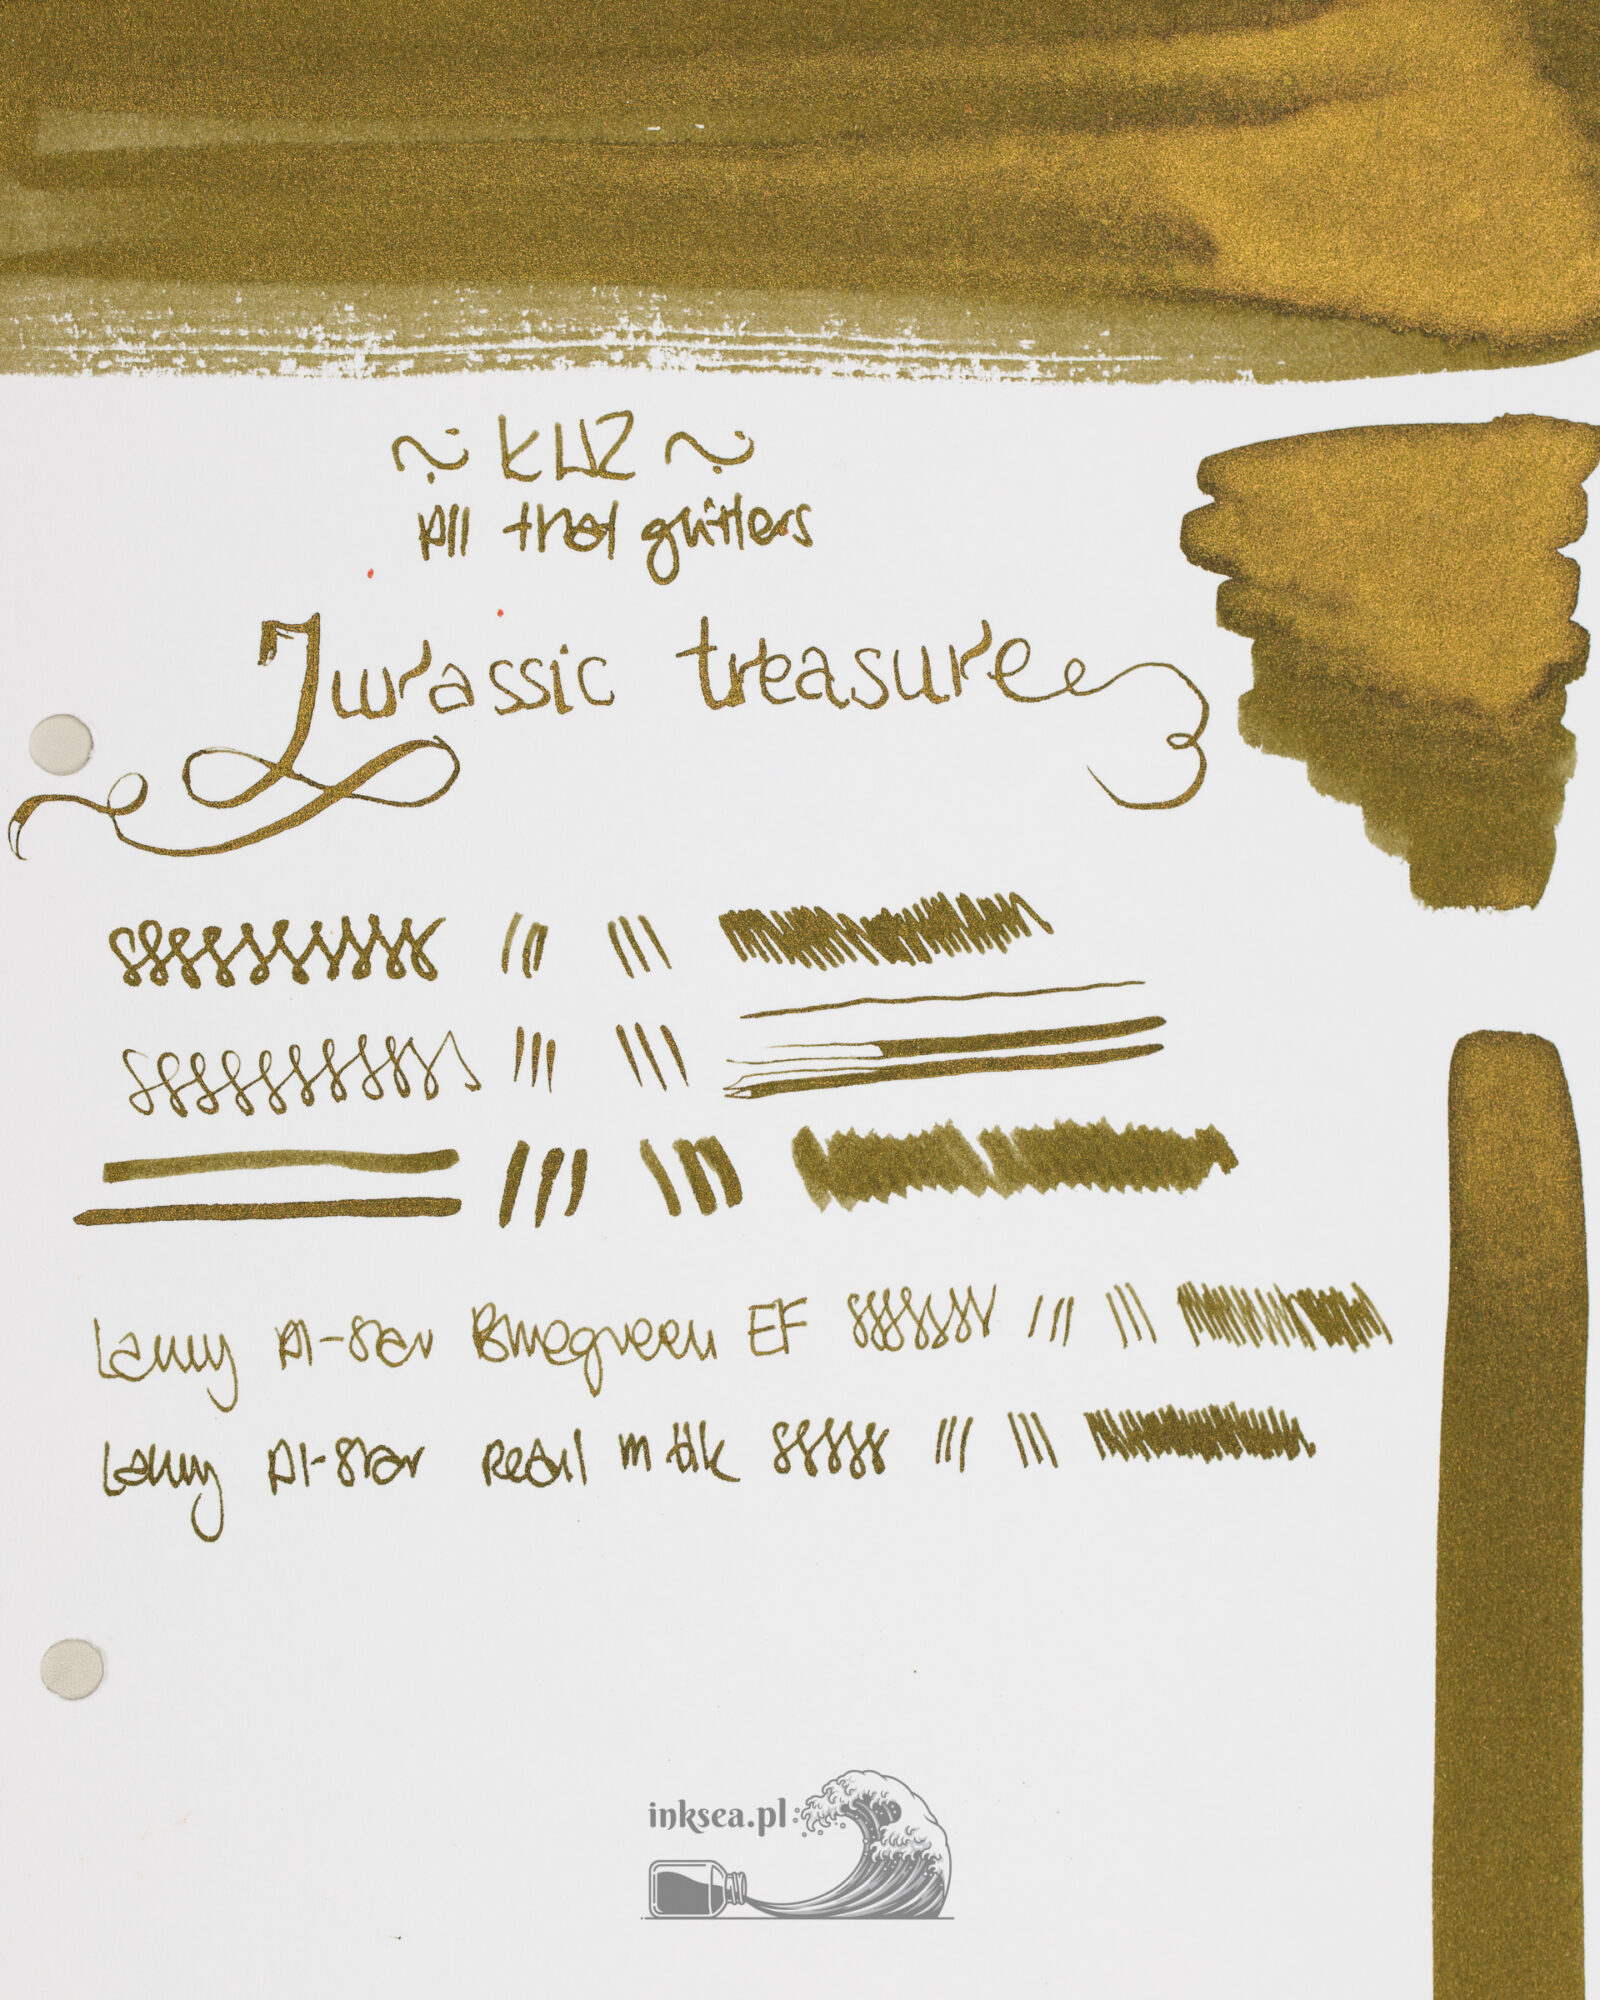 ~ KWZ ~
All that glitters
Jurassic treasure
Lamy Al-Star Bluegreen EF
Lamy Al-Star
inksea.pl